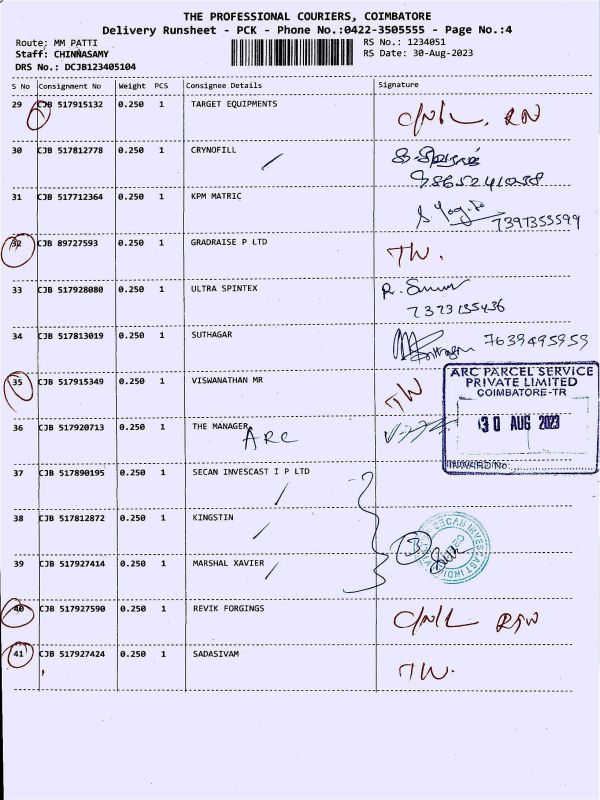 THE PROFESSIONAL COURIERS, COIMBATORE
Delivery Runsheet - PCK - Phone No.:0422-3505555 - Page No.:4
Route: MM PATTI RS No.: 1234051
Staff: CHINNASAMY RS Date: 30-Aug-2023
DRS No.: DCJB123405104
S No Consignment No Weight PCS Consignee Details Signature
29 CJB 517915132 0.250 1 TARGET EQUIPMENTS
30 CJB 517812778 0.250 1 CRYNOFILL
9865241038
31 CJB 517712364 0.250 1 KPM MATRIC
7397353599
32 CJB 89727593 0.250 1 GRADRAISE P LTD TW.
33 CJB 517928080 0.250 1 ULTRA SPINTEX
7373135436
34 CJB 517813019 0.250 1 SUTHAGAR 7639495959
35 CJB 517915349 0.250 1 VISWANATHAN MR TW
ARC PARCEL SERVICE
PRIVATE LIMITED
COIMBATORE-TR
30 AUG 2023
INWARD No.
36 CJB 517920713 0.250 1 THE MANAGER ARC
37 CJB 517890195 0.250 1 SECAN INVESCAST I P LTD
38 CJB 517812872 0.250 1 KINGSTIN
3
39 CJB 517927414 0.250 1 MARSHAL XAVIER
40 CJB 517927590 0.250 1 REVIK FORGINGS
41 CJB 517927424 0.250 1 SADASIVAM TW.